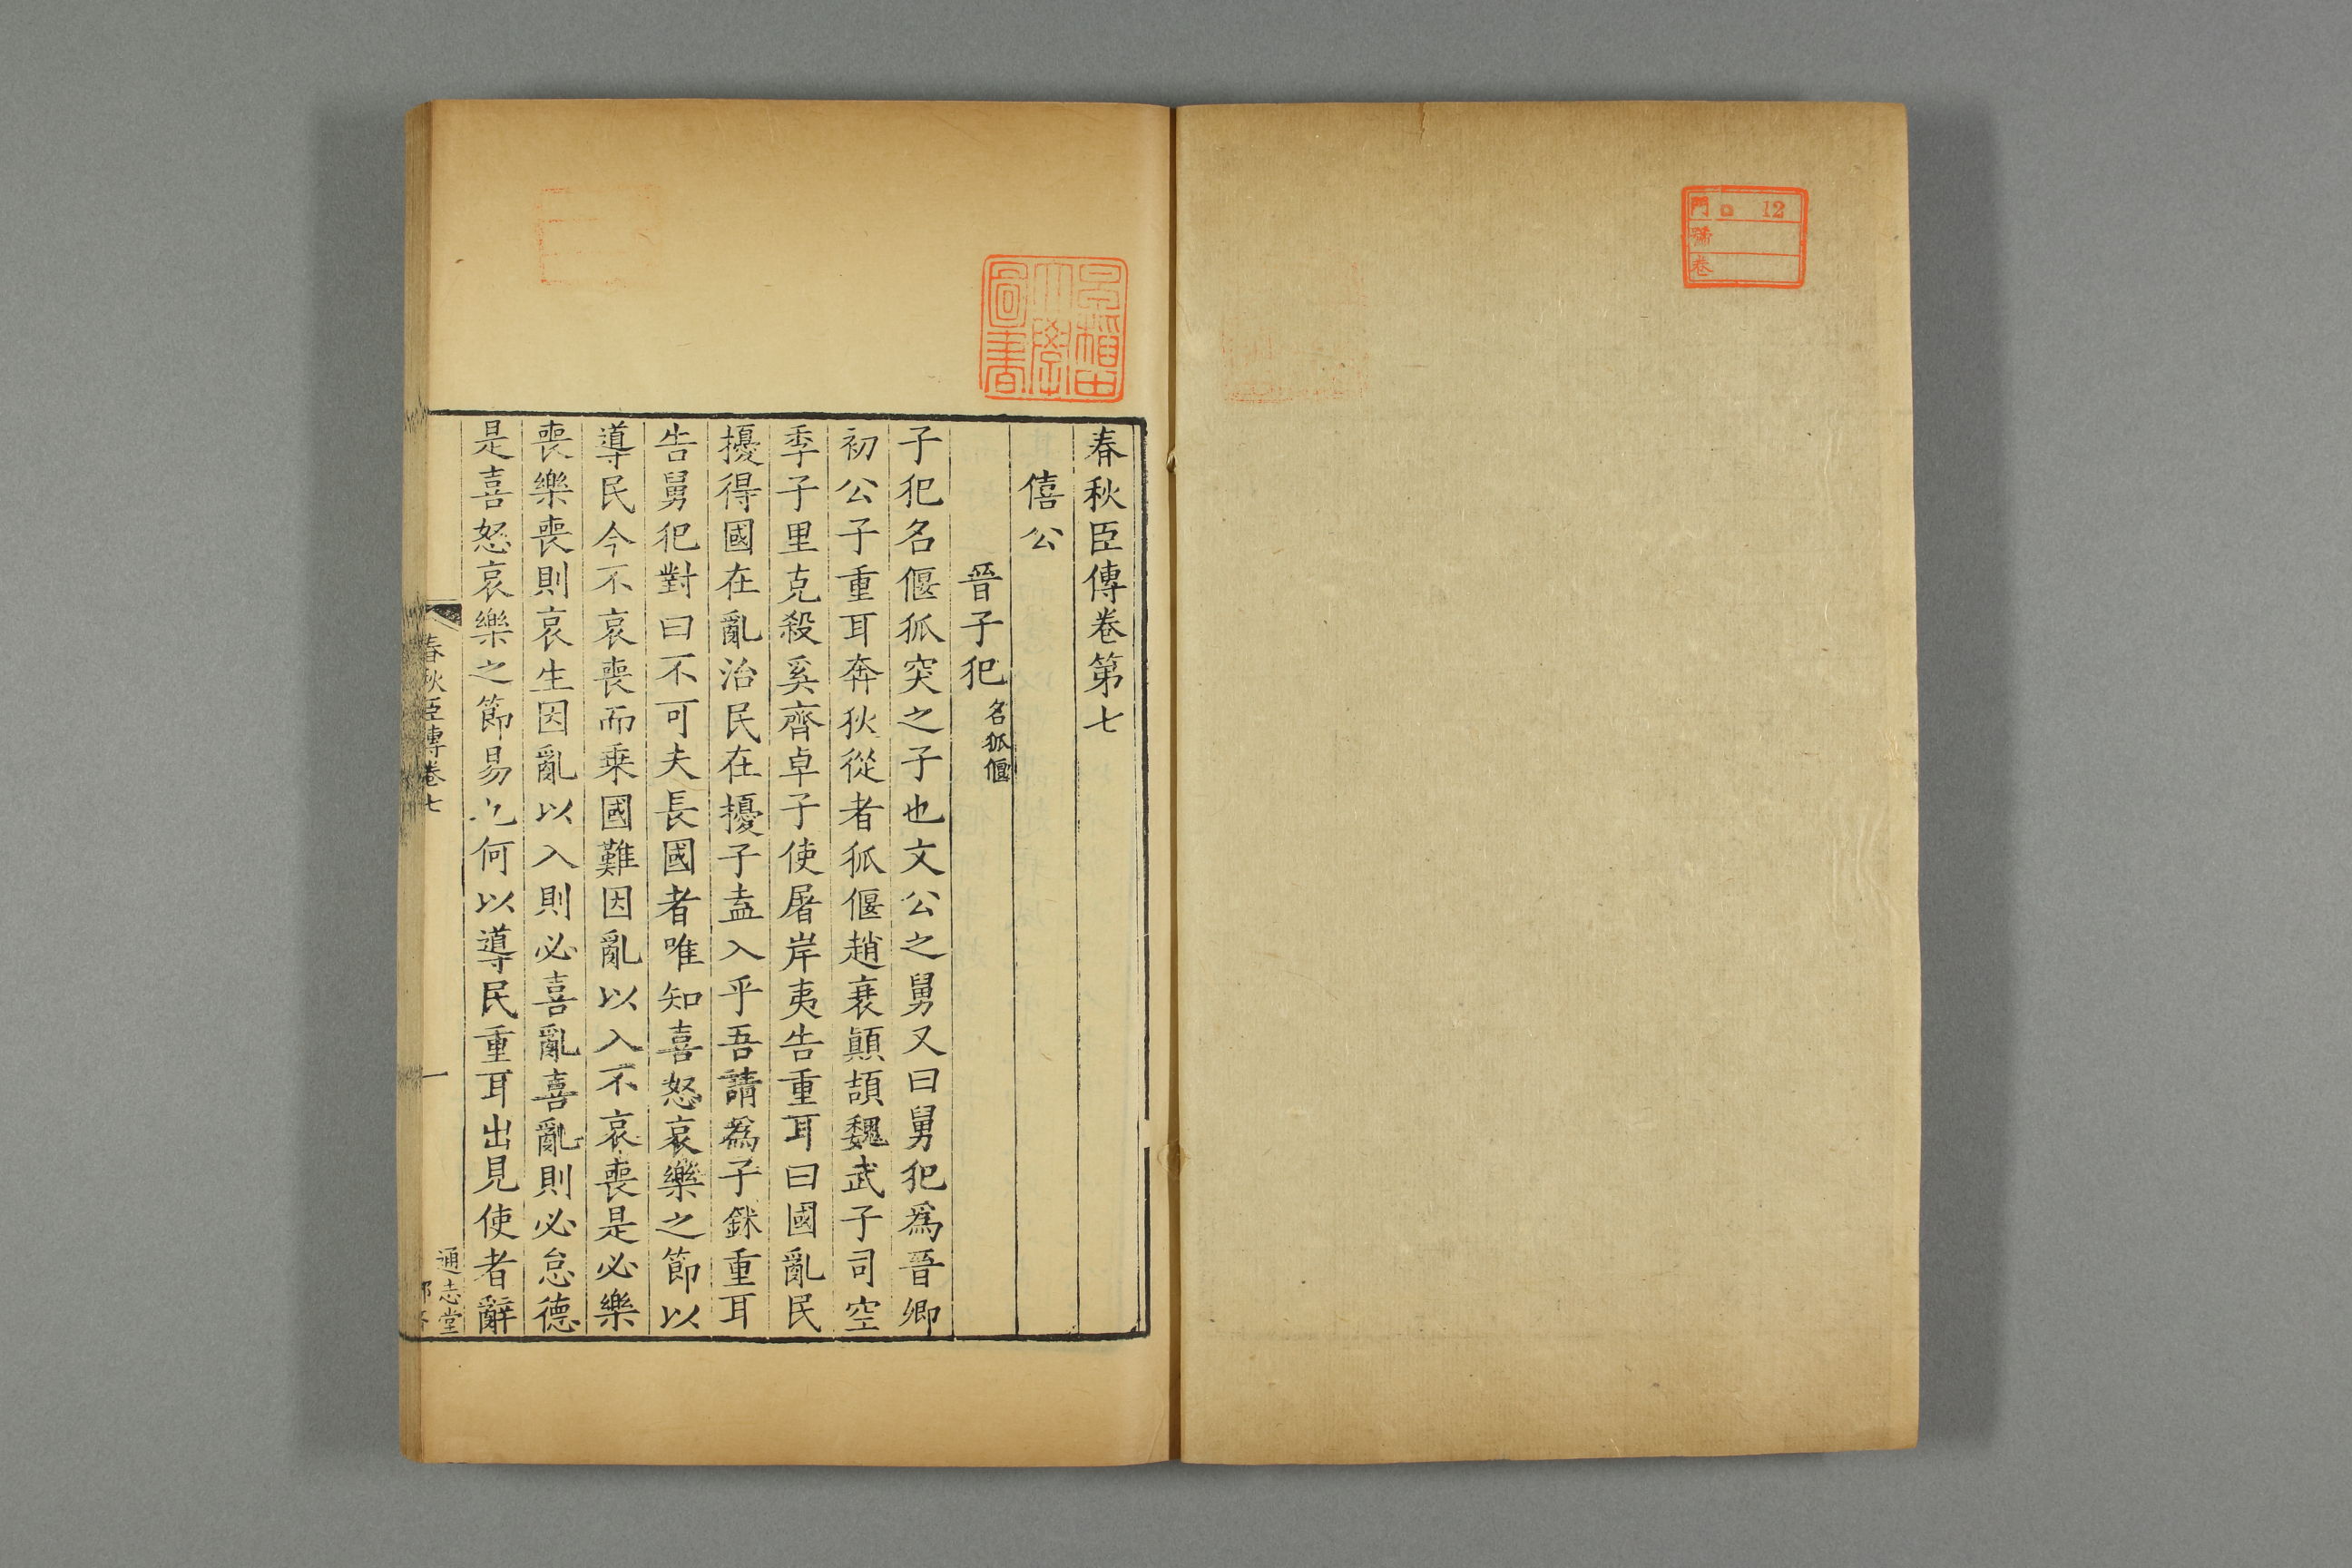 門 ロ 12
號
卷
早稻田大學圖書
春秋臣傳卷第七
僖公
晉子犯名狐偃
子犯名偃狐突之子也文公之舅又曰舅犯爲晉卿
初公子重耳奔狄從者狐偃趙衰顚頡魏武子司空
季子里克殺奚齊卓子使屠岸夷告重耳曰國亂民
擾得國在亂治民在擾子盍入乎吾請爲子鉥重耳
告舅犯對曰不可夫長國者唯知喜怒哀樂之節以
導民今不哀喪而乗國難因亂以入不哀喪是必樂
喪樂喪則哀生因亂以入則必喜亂喜亂則必怠德
是喜怒哀樂之節易也何以導民重耳出見使者辭
春秋臣傳卷七
一
通志堂